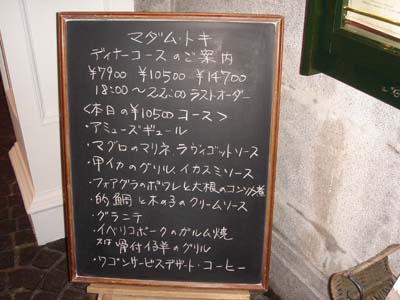 マダム・トキ
ディナーコースのご案内
¥7900 ¥10500 ¥14700
18:00〜22:00ラストオーダー
〈本日の¥10500コース〉
・アミューズギュール
・マグロのマリネ、ラヴィゴットソース
・甲イカのグリル、イカスミソース
・フォアグラのポワレと大根のコンソメ煮
・的鯛と木の子のクリームソース
・グラニテ
・イベリコポークのガルム焼
又は 骨付仔羊のグリル
・ワゴンサービスデザート・コーヒー